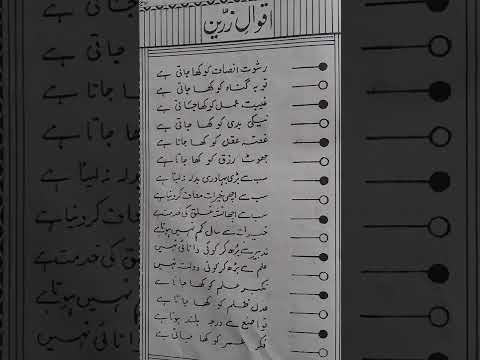 اقوالِ زرّیں
رشوت انصاف کو کھا جاتی ہے
توبہ گناہ کو کھا جاتی ہے
غیبت عمل کو کھا جاتی ہے
نیکی بدی کو کھا جاتی ہے
غصہ عقل کو کھا جاتا ہے
جھوٹ رزق کو کھا جاتا ہے
سب سے بڑی بہادری بدلہ نہ لینا ہے
سب سے اچھی خیرات معاف کر دینا ہے
سب سے اچھا نشہ خلق کی خدمت ہے
خیرات سے مال کم نہیں ہوتا ہے
تدبیر سے بڑھ کر کوئی دانائی نہیں
علم سے بڑھ کر کوئی دولت نہیں
تکبر علم کو کھا جاتا ہے
عدل ظلم کو کھا جاتا ہے
تواضع سے درجہ بلند ہوتا ہے
فکر عمر کو کھا جاتی ہے